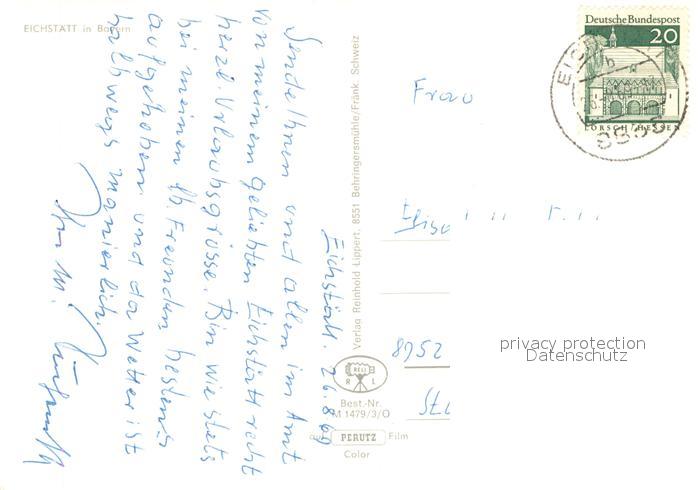 EICHSTÄTT in Bayern
Eichstätt. 26.8.69
Sende Ihnen und allen im Amt
von meinem geliebten Eichstätt recht
herzl. Urlaubsgrüsse. Bin wie stets
bei meinen lb. Freunden bestens
aufgehoben und das Wetter ist
halbwegs manierlich.
Ihr
Verlag Reinhold Lippert, 8551 Behringersmühle/Fränk. Schweiz
RELI
R L
Best.-Nr.
M 1479/3/O
auf PERUTZ Film
Color
Deutsche Bundespost
20
LORSCH/HESSEN
Frau
8952
privacy protection
Datenschutz